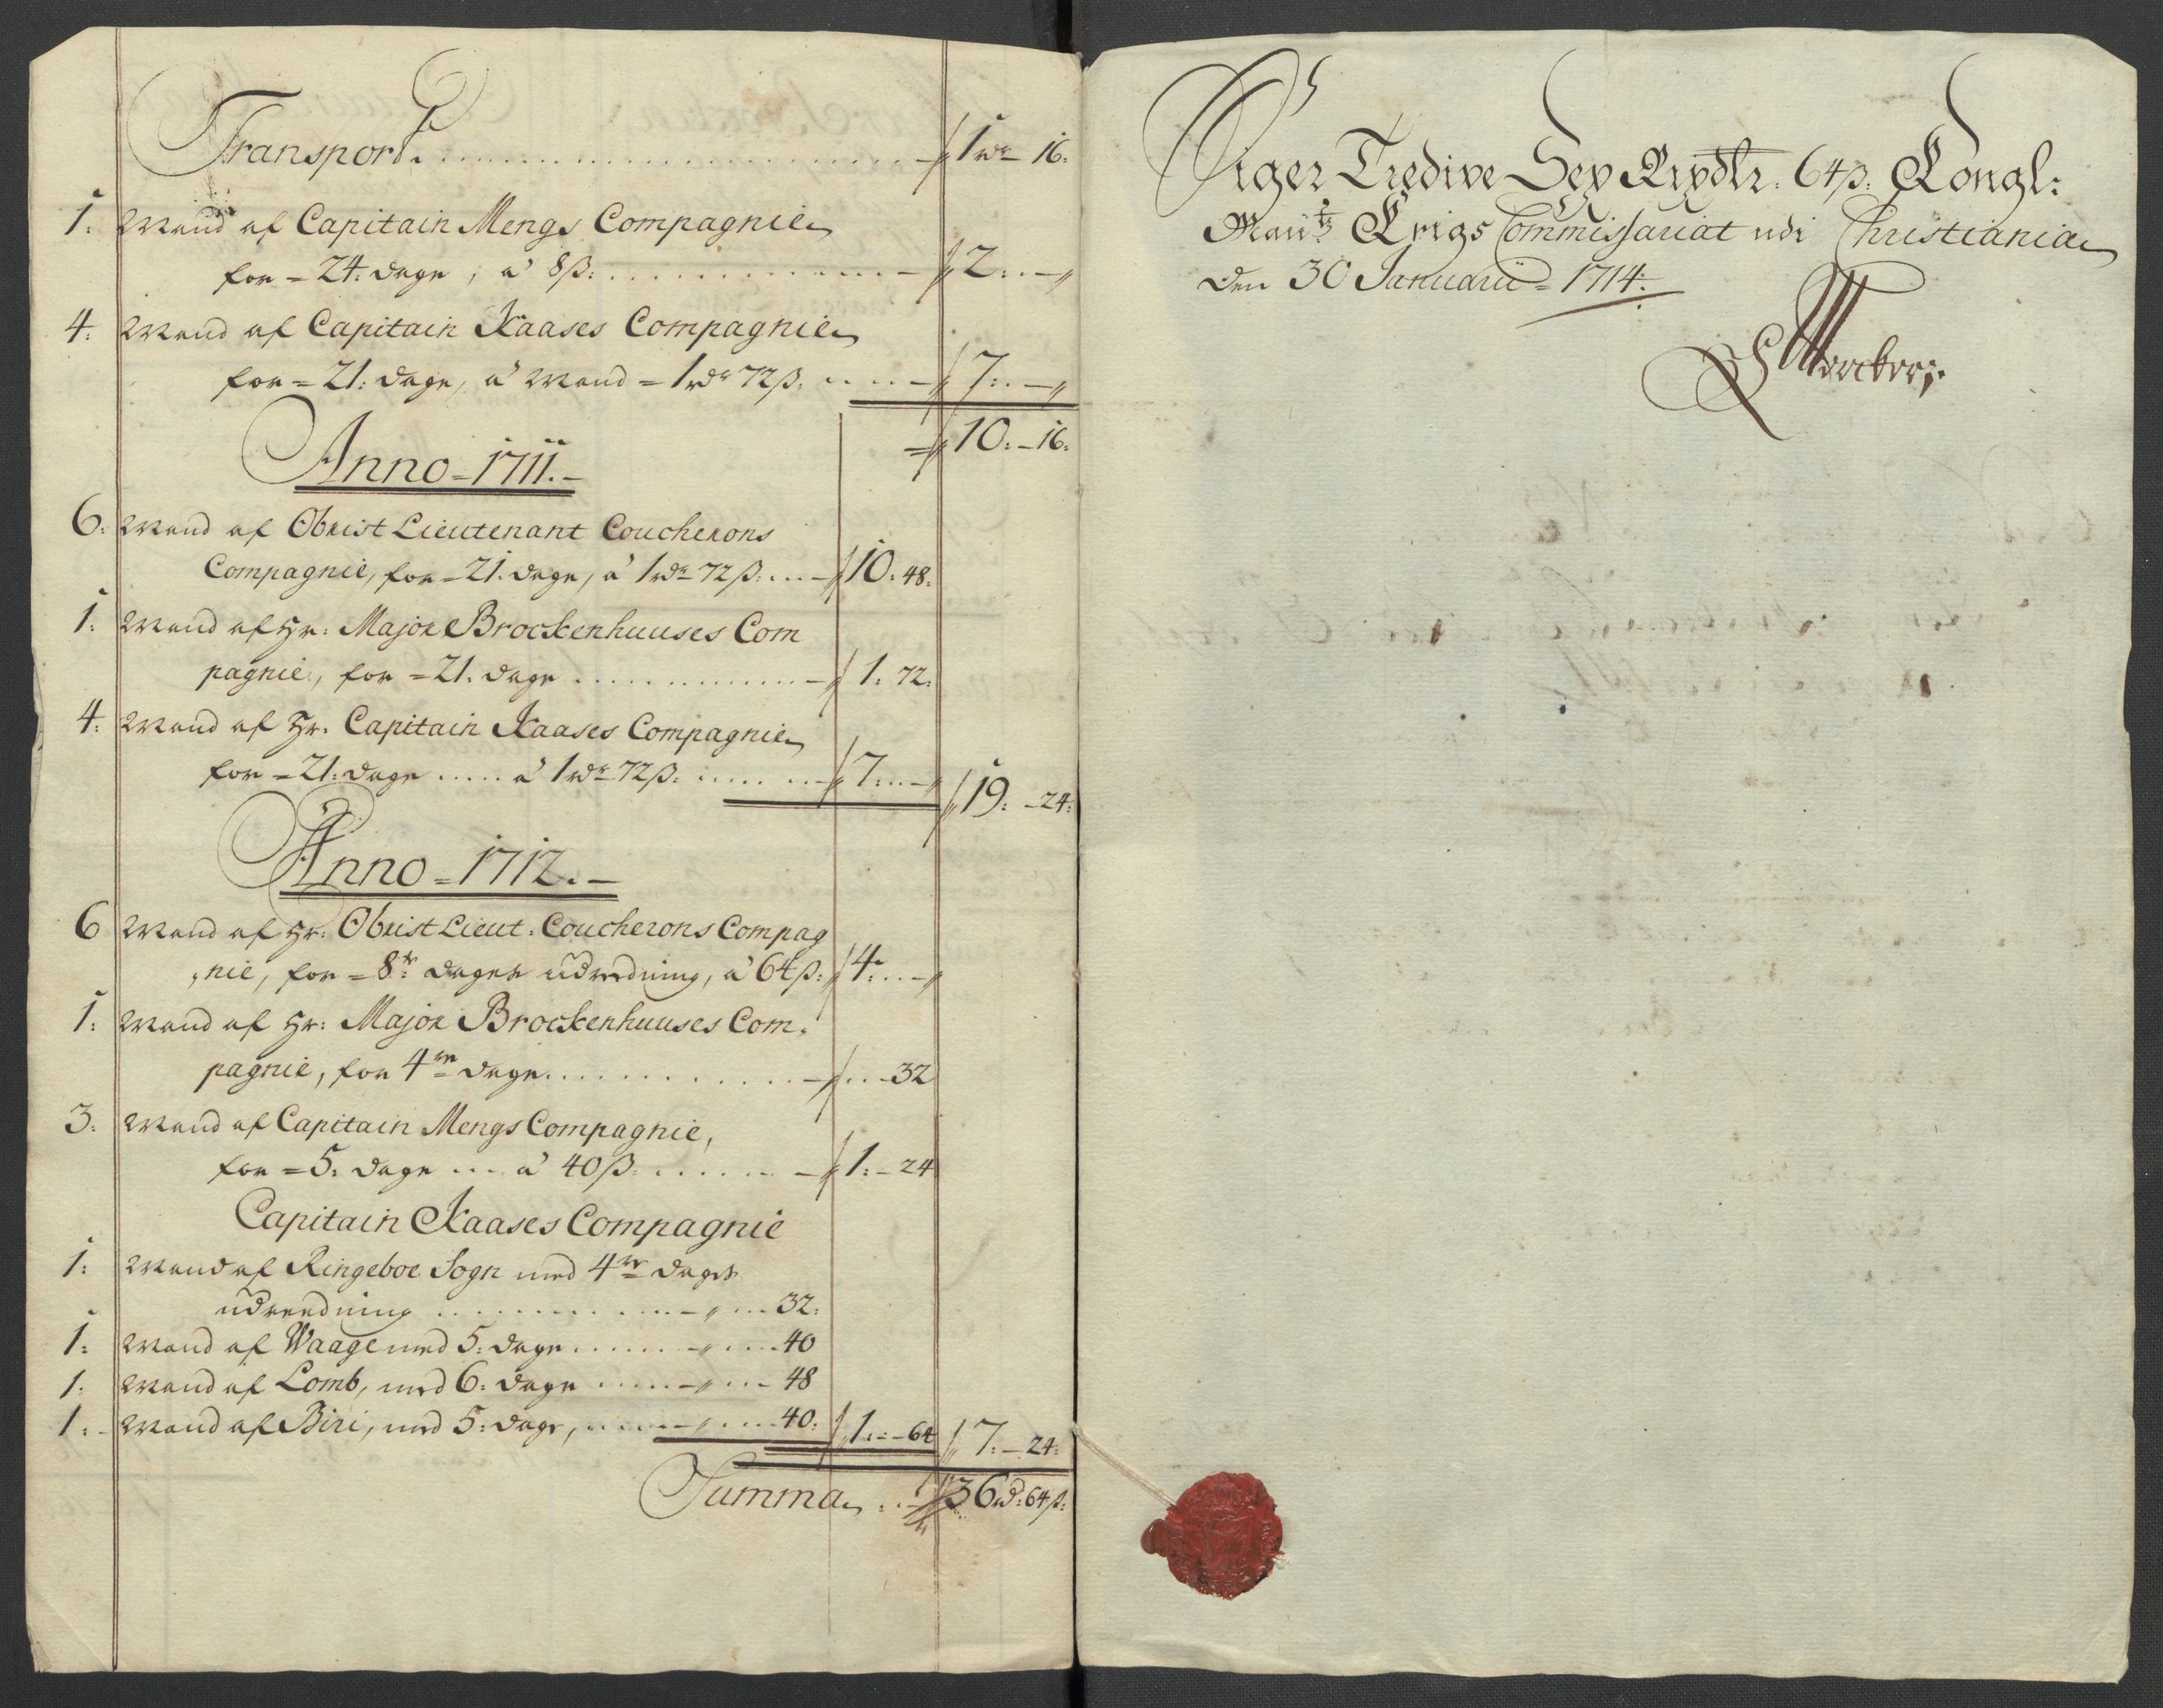 Transport. 1 rdr 16:
1: Mand af Capitain Mengs Compagnie
for = 24: dage, a 8 ß: 2: -
4: Mand af Capitain Kaases Compagnie
for = 21: dage, a Mand = 1 rdr 72 ß. 7: -
10: - 16:
Anno = 1711. -
6: Mand af Obrist Lieutenant Coucherons
Compagnie, for = 21. dage, a 1 rdr 72 ß: 10: 48:
1: Mand af Hr: Major Brockenhuuses Com
pagnie, for = 21. dage 1: 72:
4: Mand af Hr. Capitain Kaases Compagnie
for = 21: dage a 1 rdr 72 ß: 7: -
19: - 24:
Anno = 1712. -
6 Mand af Hr: Obrist Lieut: Coucherons Compag
nie, for = 8te dages udreedning, a 64 ß: 4: -
1: Mand af Hr: Major Brockenhuuses Com,
pagnie, for 4re dage - 32
3: Mand af Capitain Mengs Compagnie,
for = 5: dage a 40 ß 1: - 24
Capitain Kaases Compagnie
1: Mand af Ringeboe Sogn med 4re dages
udreedning 32:
1: Mand af Waage med 5: dage 40
1: Mand af Lomb, med 6: dage 48
1: Mand af Biri, med 5: dage, 40: 1: - 64 7: - 24:
Summa 36 rd: 64 ß:
Siger Tredive Sex Rixdlr. 64 ß. Kongl:
Maÿts Krigs Commissariat udi Christiania
Den 30 Januarii = 1714: